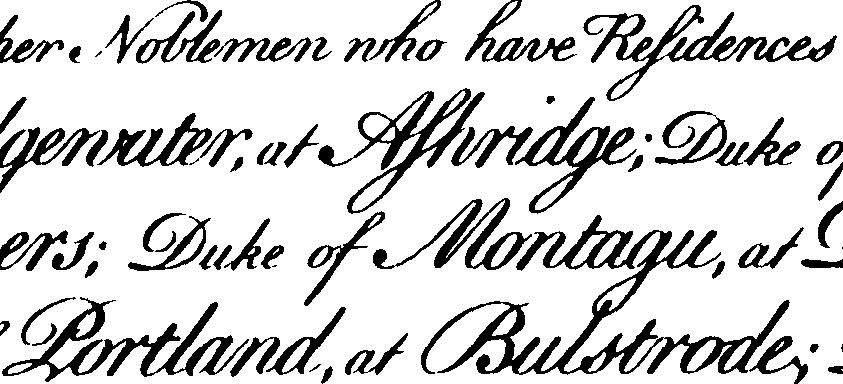 her Noblemen who have Reſidences
dgewater, at Aſhridge; Duke of
ers; Duke of Montagu, at
Portland, at Bulstrode;